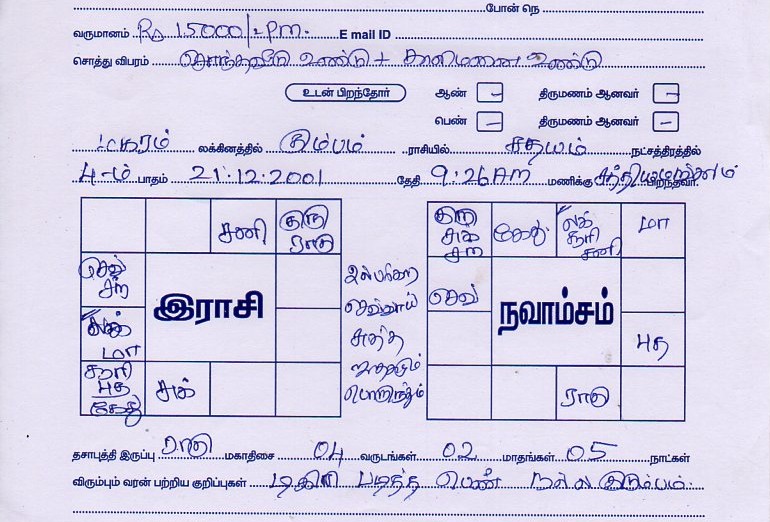 போன் நெ
வருமானம் Rs 15000/- Pm. E mail ID
சொத்து விபரம் சொந்தவீடு உண்டு + காலிமனை உண்டு
உடன் பிறந்தோர் ஆண் - திருமணம் ஆனவர் -
பெண் - திருமணம் ஆனவர் -
மகரம் லக்கினத்தில் கும்பம் ராசியில் சதயம் நட்சத்திரத்தில்
4-ம் பாதம் 21.12.2001 தேதி 9:26 AM மணிக்கு பிறந்தவர்.
சனி குரு ராகு
குரு சுக் சந் கேது லக் சூரி சனி மா
செவ் சந்
செவ்
இராசி
நவாம்சம்
லக் மா
புத
சூரி புத கேது சுக்
ராகு
செவ்வாய்
சுத்த
ஜாதகமும்
பொருந்தும்
தசாபுத்தி இருப்பு ராகு மகாதிசை 04 வருடங்கள் 02 மாதங்கள் 05 நாட்கள்
விரும்பும் வரன் பற்றிய குறிப்புகள் டிகிரி படித்த பெண் நல்ல குடும்பம்.